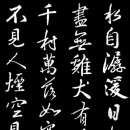 水自潺湲日
盡無雞犬有
千村萬落如
不見人煙空見